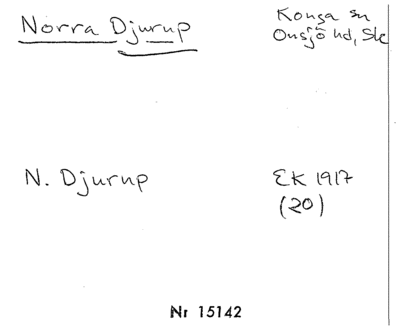 Norra Djurup
Konga sn
Onsjö hd, Sk
N. Djurup
EK 1917
(20)
Nr 15142